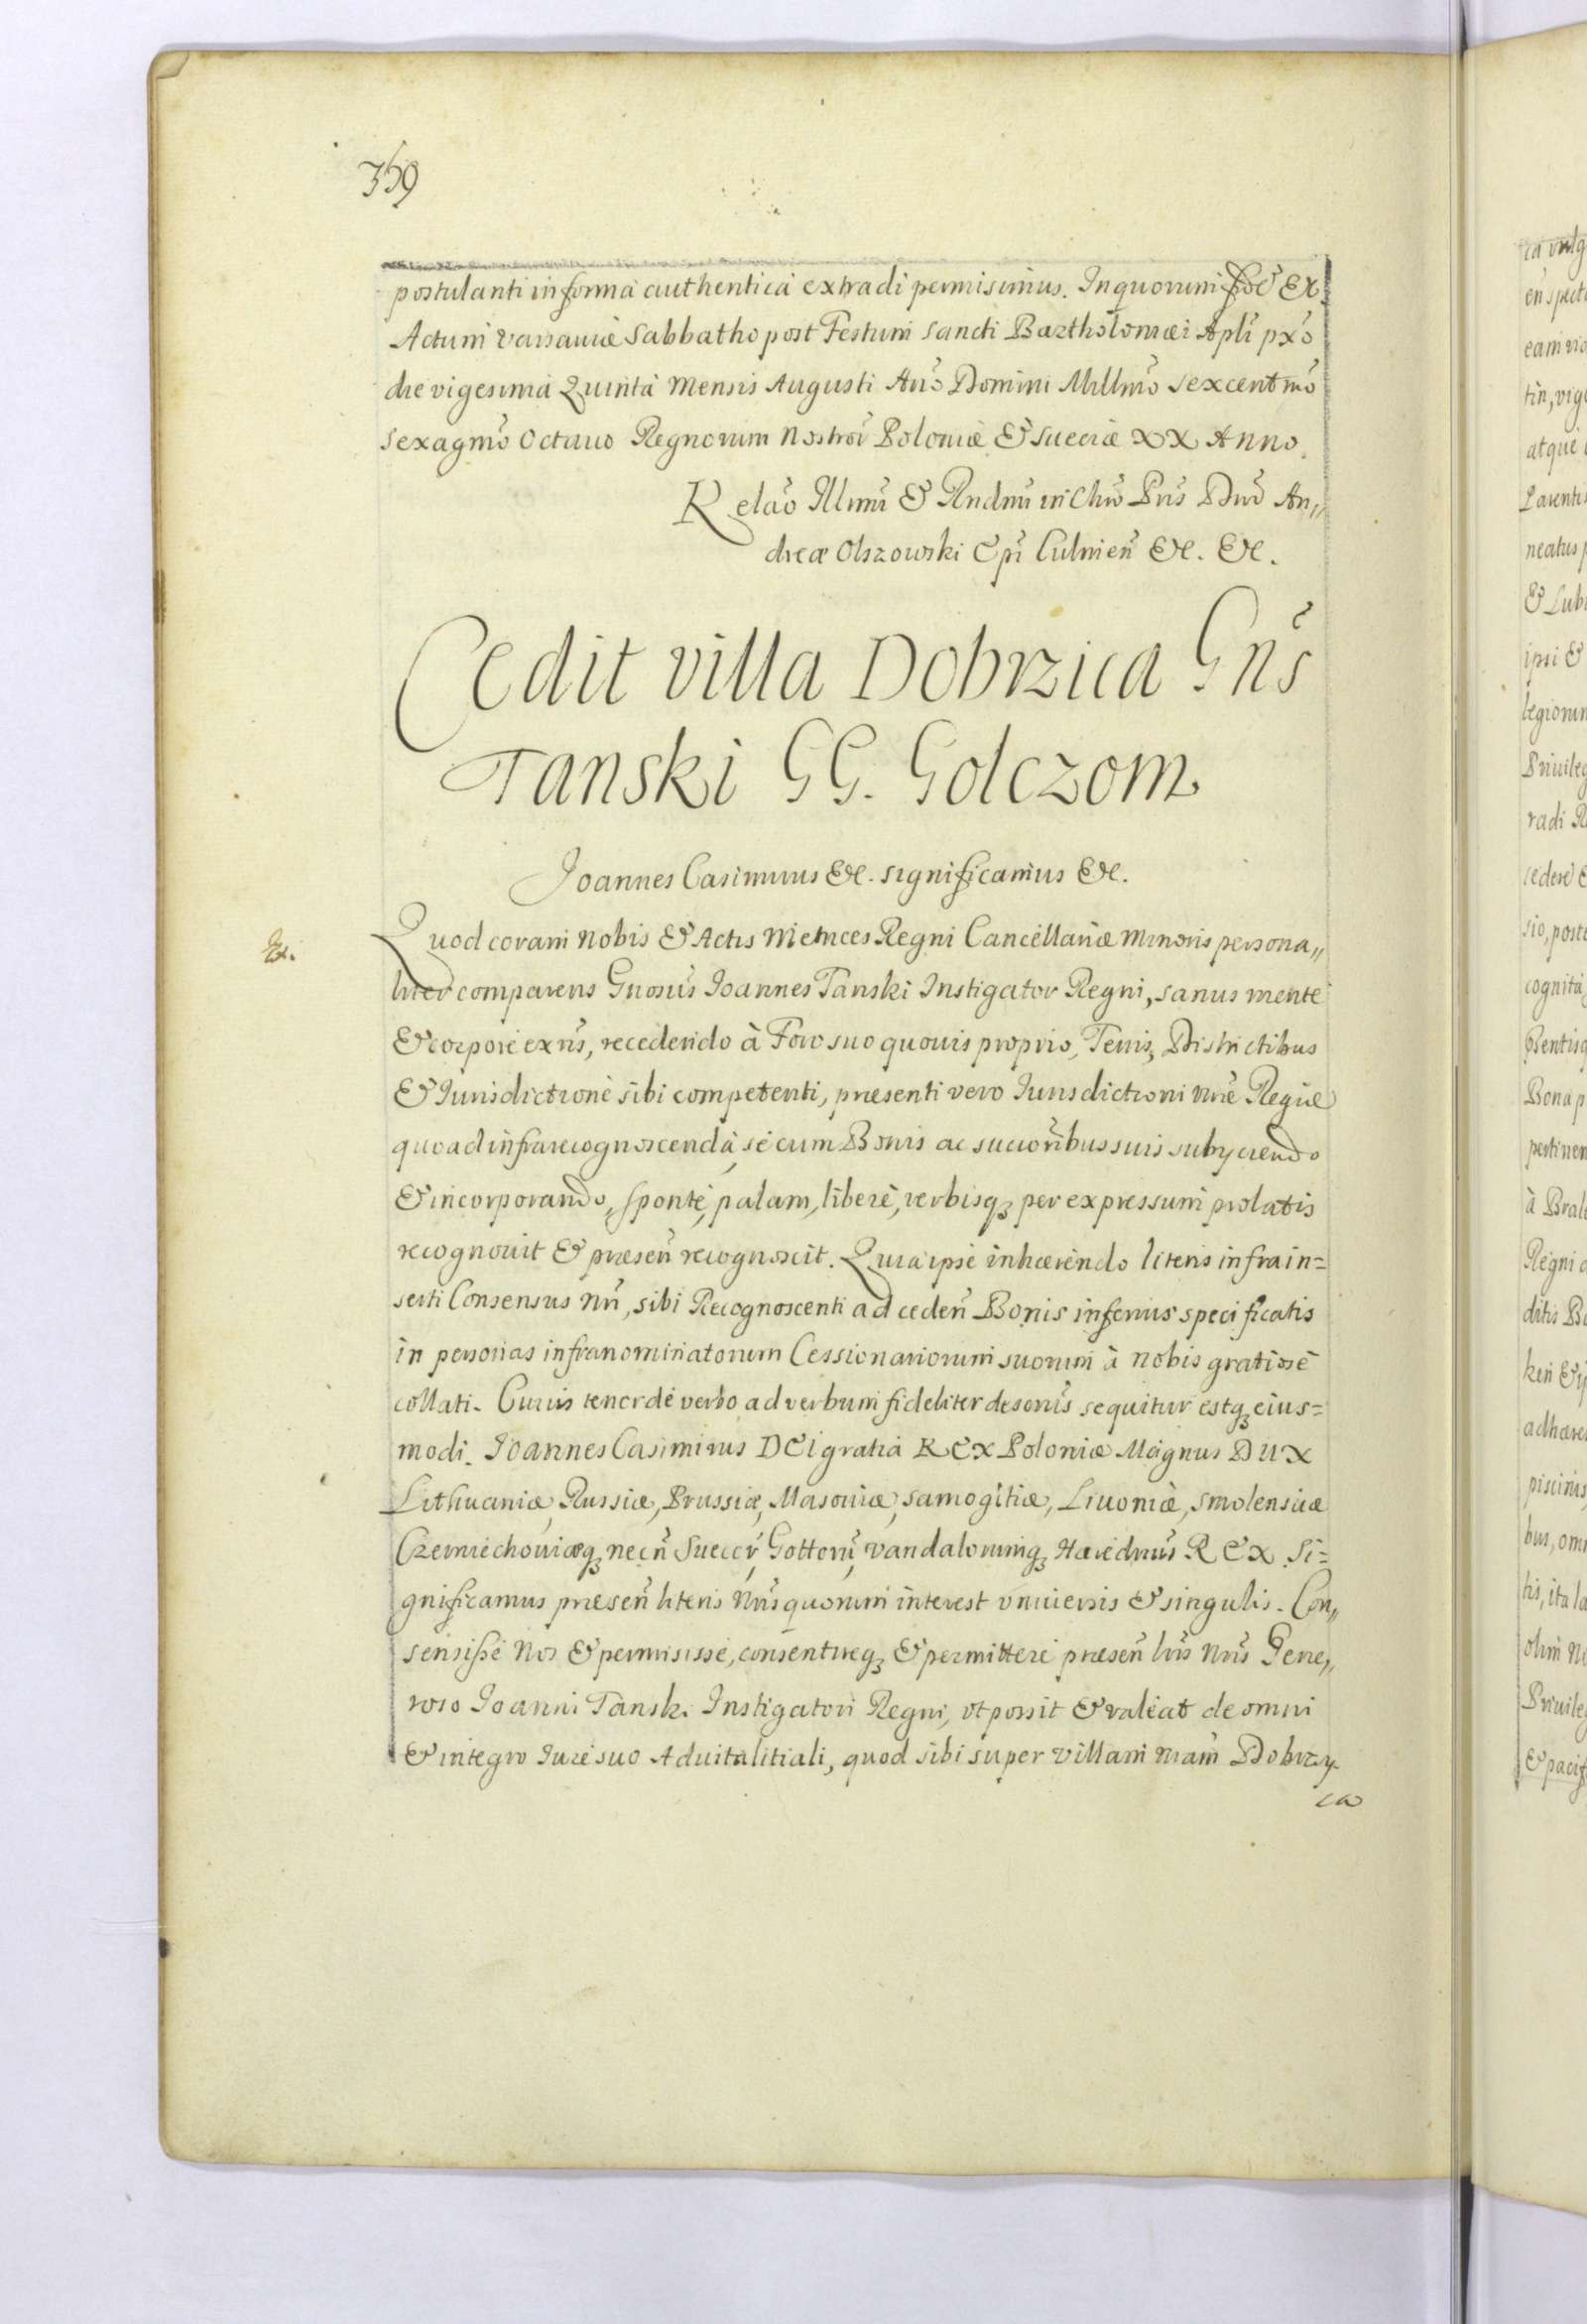 359
postulanti in forma authentica extradi permisimus. In quorum fidē &c.
Actum Varsaviæ Sabbatho post Festum Sancti Bartholomæi Apli pxō
die vigesima Quinta Mensis Augusti Anō Domini Millmō sexcentmō
sexagmō Octavo Regnorum Nostrorū Poloniæ & Sueciæ XX Anno.
Relaō Illmi & Rndmi in Chrō Pris Dnō An„
dreæ Olszowski Epi Culmen̄ &c. &c.
Cedit villa Dobrzica Gn̄s
Tanski GG. Golczom
Joannes Casimirus &c. significamus &c.
Ex.
Quod coram Nobis & Actis Metrices Regni Cancellariæ Minoris persona„
liter comparens Gnosūs Joannes Tanski Instigator Regni, sanus mente
& corpore exn̄s, recedendo à Foro suo quovis proprio, Terris, Districtibus
& Iurisdictione sibi competenti, præsenti vero Iurisdictioni nr̄æ Regiæ
quoad infrarecognoscenda, se cum Bonis ac successoribus suis subyciendo
& incorporando, sponte, palam, libere, verbisq; per expressum prolatis
recognovit & præsen̄ recognoscit. Quia ipse inhærendo literis infra in=
serti Consensus nr̄i, sibi Recognoscenti ad ceden̄ Bonis inferius specificatis
in personas infranominatorum Cessionariorum suorum à nobis gratiose
collati. Cuius tenor de verbo ad verbum fideliter desonīs sequitur estq; eius=
modi. Joannes Casimirus DEI gratia REX Poloniæ Magnus DUX
Lithuaniæ, Russiæ, Prussiæ, Masoviæ, Samogitiæ, Livoniæ, Smolensciæ
Czerniechoviæq; necn̄ Suecor̄, Gottorū, Vandalorumq; Hæredrius REX. Si=
gnificamus præsen̄ literis nr̄is quorum interest universis & singulis. Con„
sensisse Nos & permisisse, consentireq; & permittere præsen̄ lr̄is nr̄is Gene„
roso Joanni Tanski Instigatori Regni, ut possit & valeat de omni
& integro Iure suo Advitalitiali, quod sibi super villam nr̄am Dobrzy
ca